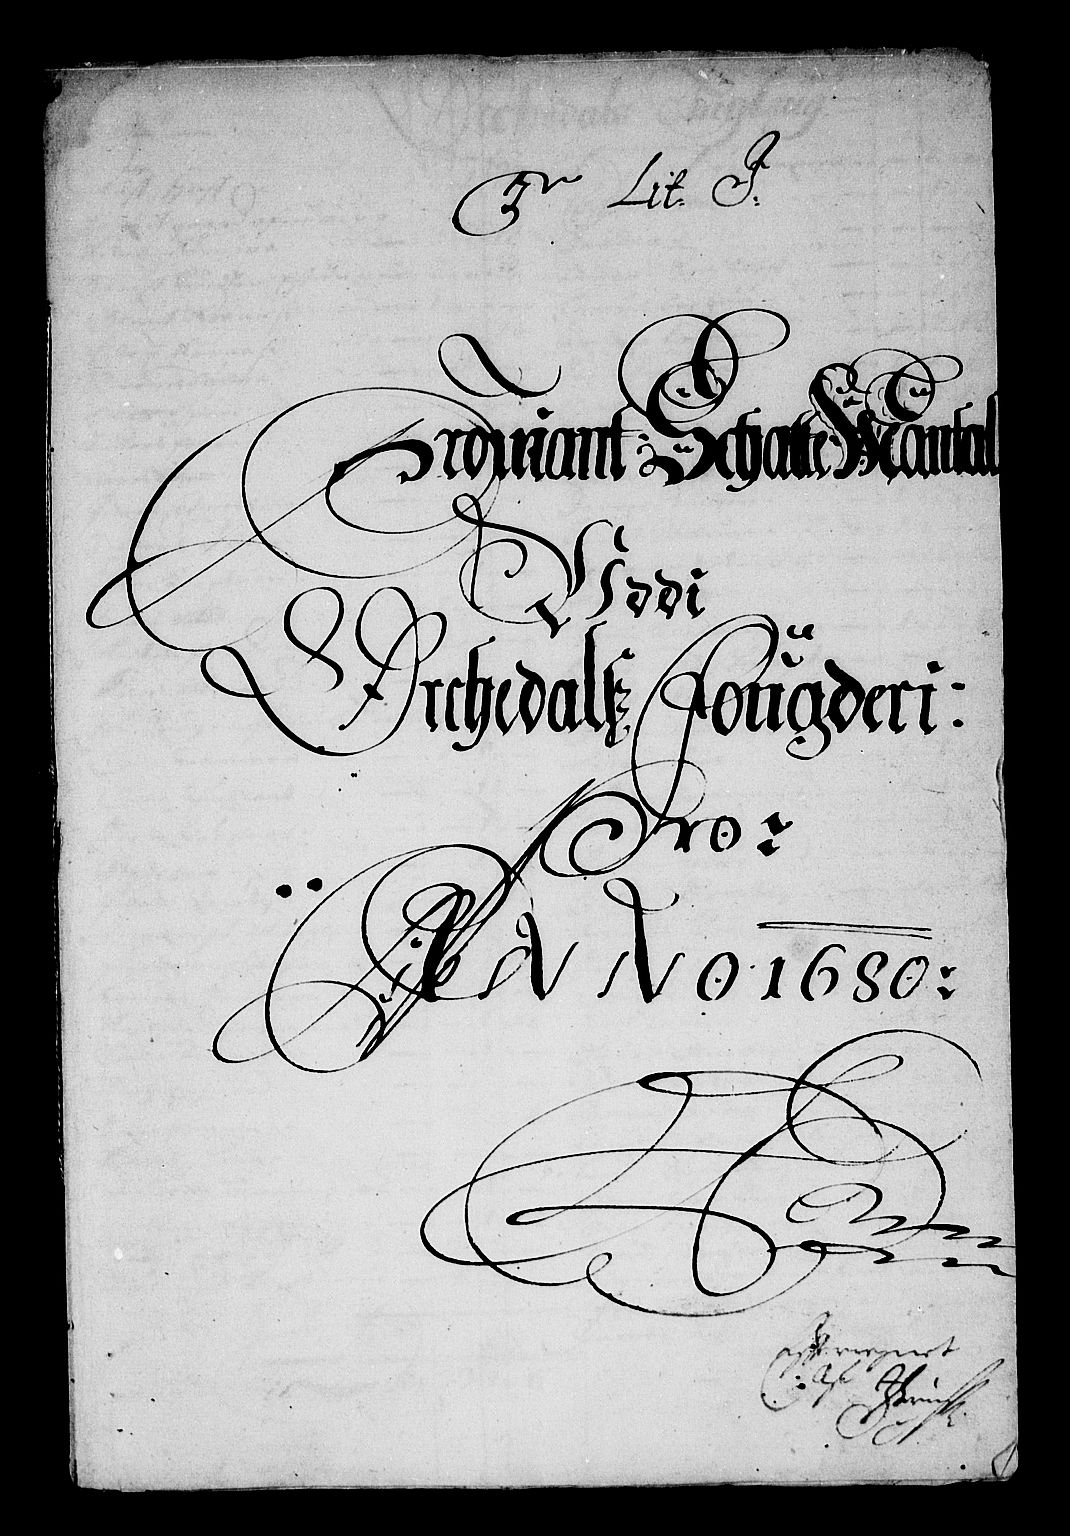 Lit. J:
Proviant: Schatte Mantal
Udi
Orchedals Fougderi:
Pro:
ANNO 1680: